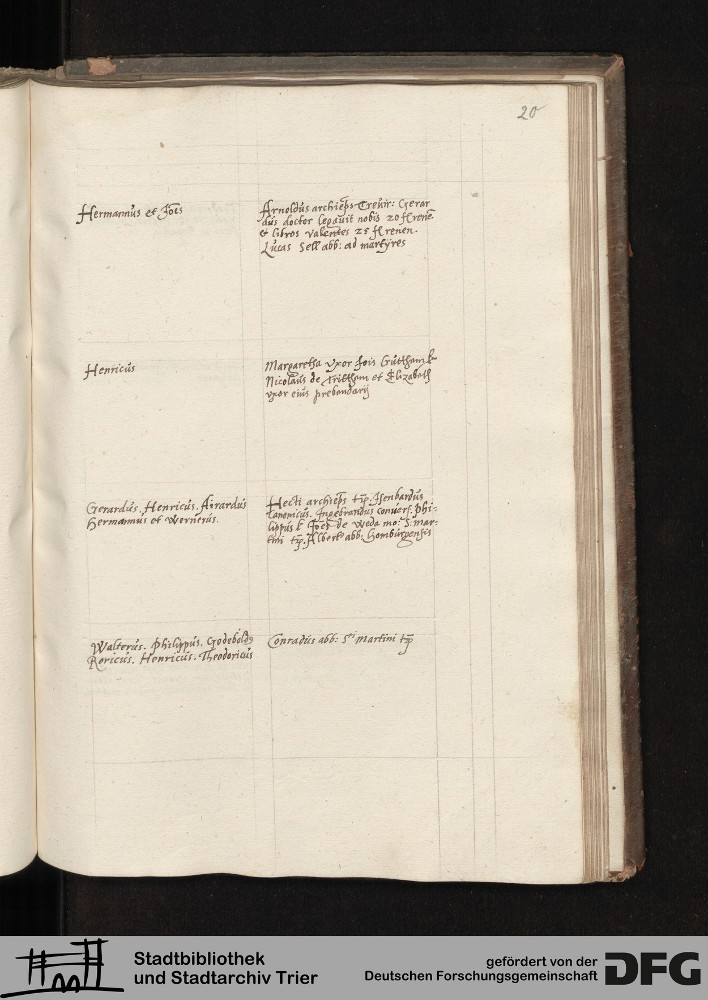 20
Hermannus et Jois
Arnoldus archieps Trevir: Gerar
dus doctor legavit nobis 20 fl renen
et libros valentes 25 fl renen.
Lucas Sell abb: ad martyres
Henricus
Margaretha vxor Jois
Nicolaus de Trittham et Elizabeth
vxor eius prebendarij
Gerardus. Henricus. Airardus
Hermannus et Wernerus.
Hecti archieps tp. Isenbardus
canonicus. Ingebrandus convers. Phi-
lippus Joes de Weda mo: S. mar-
tini tp. Albert abb: Homburgensis
Walterus. Philippus. Godebold9
Rericus. Henricus. Theodoricus
Conradus abb: Sti Martini tp
Stadtbibliothek
und Stadtarchiv Trier
gefördert von der
Deutschen Forschungsgemeinschaft
DFG